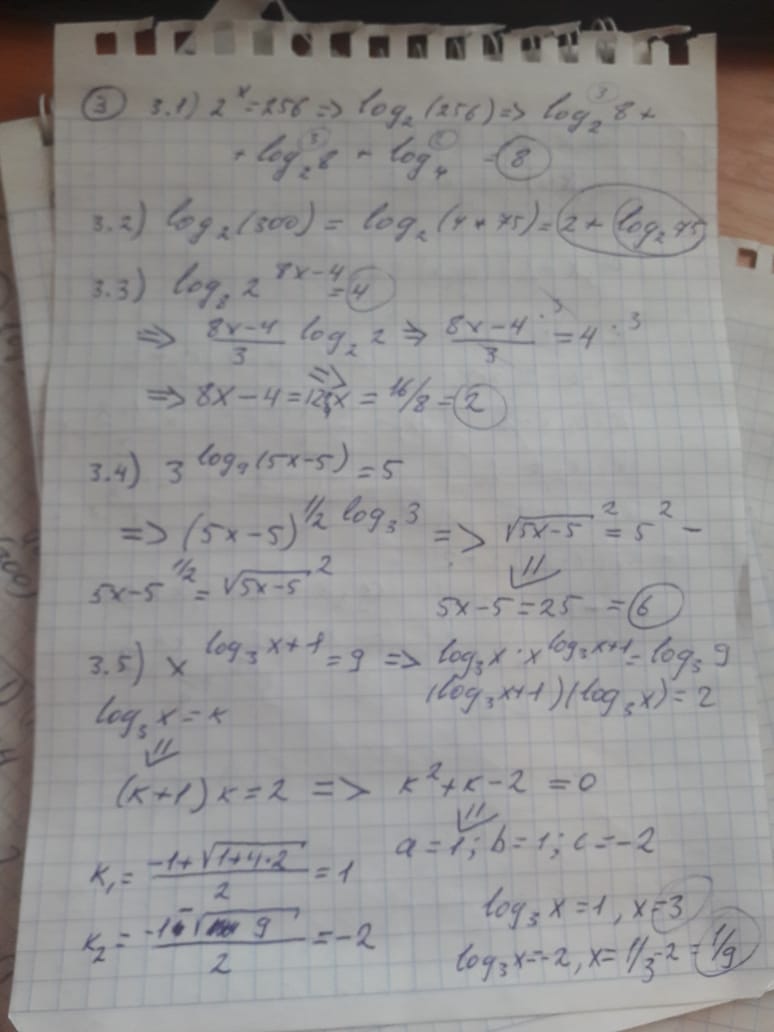 ③ 3.1) 2^x = 256 => log₂(256) => log₂8 +
+ log₂8 + log₄ = 8
3.2) log₂(300) = log₂(4 * 75) = 2 + log₂75
3.3) log₈2^(8x-4) = 4
=> (8x-4)/3 log₂2 => (8x-4)/3 · 3 = 4 · 3
=> 8x - 4 = 12 => x = 16/8 = 2
3.4) 3^(log₉(5x-5)) = 5
=> (5x-5)^(1/2 log₃3) => √(5x-5)² = 5² -
5x-5^(1/2) = √(5x-5)²
5x-5 = 25 = 6
3.5) x^(log₃x+1) = 9 => log₃x · x^(log₃x+1) = log₃9
(log₃x+1)(log₃x) = 2
log₃x = к
(к+1)к = 2 => к² + к - 2 = 0
a = 1; b = 1; c = -2
к₁ = (-1+√(1+4·2))/2 = 1
к₂ = (-1-√9)/2 = -2
log₃x = 1, x = 3
log₃x = -2, x = 1/3^-2 = 1/9